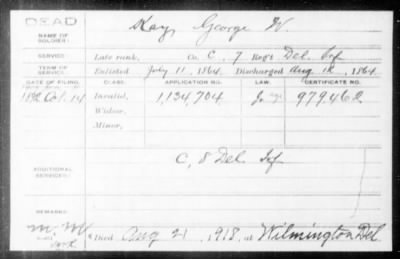 DEAD
NAME OF SOLDIER:
Kay, George W.
SERVICE:
Late rank, Co. C, 7 Reg't Del. Inf
TERM OF SERVICE
Enlisted July 11, 1864, Discharged Aug. 12, 1864.
DATE OF FILING. CLASS. APPLICATION NO. LAW. CERTIFICATE NO.
Invalid, 1,134,704 979.462
Widow,
Minor,
C, 8 Del. Inf
ADDITIONAL SERVICES:
REMARKS:
Died Aug 21, 1918, at Wilmington Del